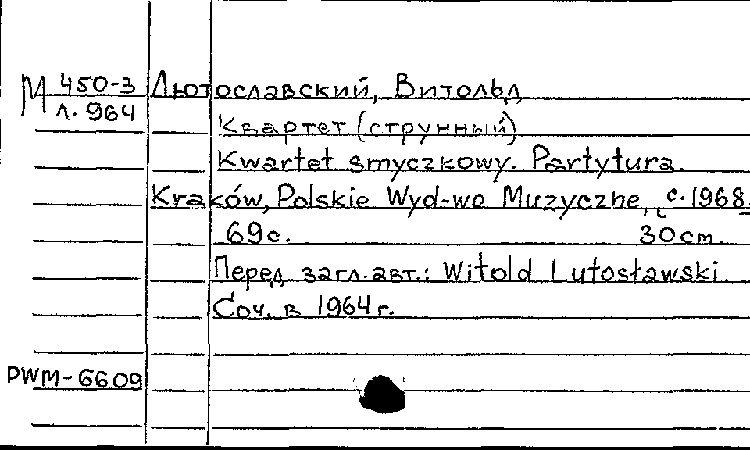 М 450-3
Л. 964
Лютославский, Витольд
Квартет (струнный)
Kwartet smyczkowy. Partytura.
Kraków, Polskie Wyd-wo Muzyczne, c. 1968.
69с. 30cm.
Перед загл. авт.: Witold Lutosławski
Соч. в 1964г.
PWM-6609